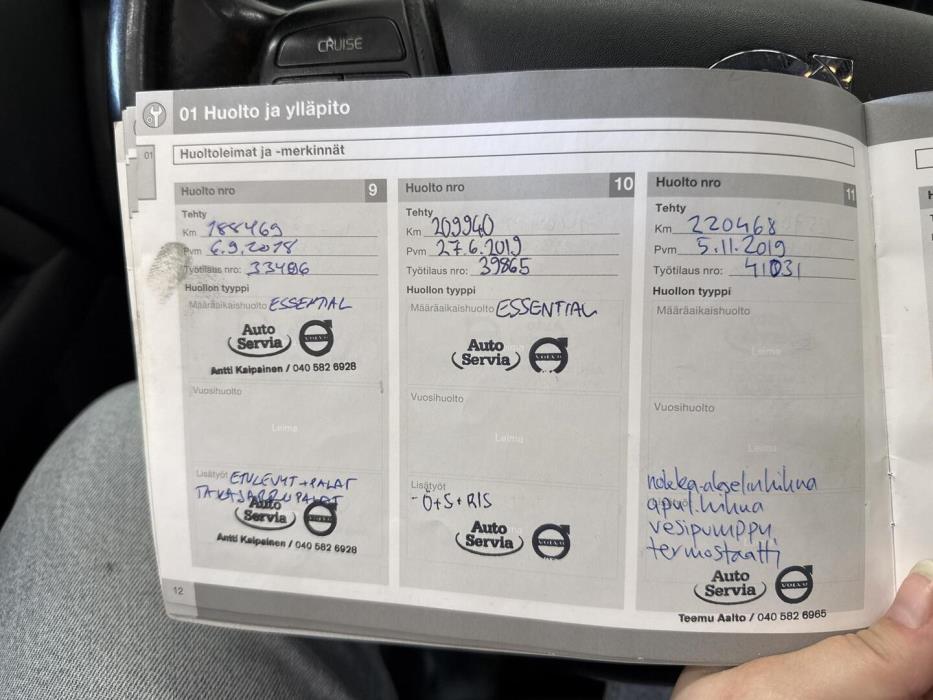 CRUISE
01 Huolto ja ylläpito
01
Huoltoleimat ja -merkinnät
Huolto nro 9
Tehty
Km 188469
Pvm 6.9.2018
Työtilaus nro: 33486
Huollon tyyppi
Määräaikaishuolto ESSENTIAL
Auto
Servia
VOLVO
Antti Kaipainen / 040 582 6928
Vuosihuolto
Leima
Lisätyöt ETULEVYT + PALAT
TAKAJARRUPALAT
Auto
Servia
VOLVO
Antti Kaipainen / 040 582 6928
12
Huolto nro 10
Tehty
Km 209940
Pvm 27.6.2019
Työtilaus nro: 39865
Huollon tyyppi
Määräaikaishuolto ESSENTIAL
Auto
Servia
VOLVO
Vuosihuolto
Leima
Lisätyöt
- Ö+S+RIS
Auto
Servia
VOLVO
Huolto nro 11
Tehty
Km 220468
Pvm 5.11.2019
Työtilaus nro: 41031
Huollon tyyppi
Määräaikaishuolto
Leima
Vuosihuolto
Leima
nokka-akselinhihna
apul.hihna
vesipumppu,
termostaatti
Auto
Servia
VOLVO
Teemu Aalto / 040 582 6965